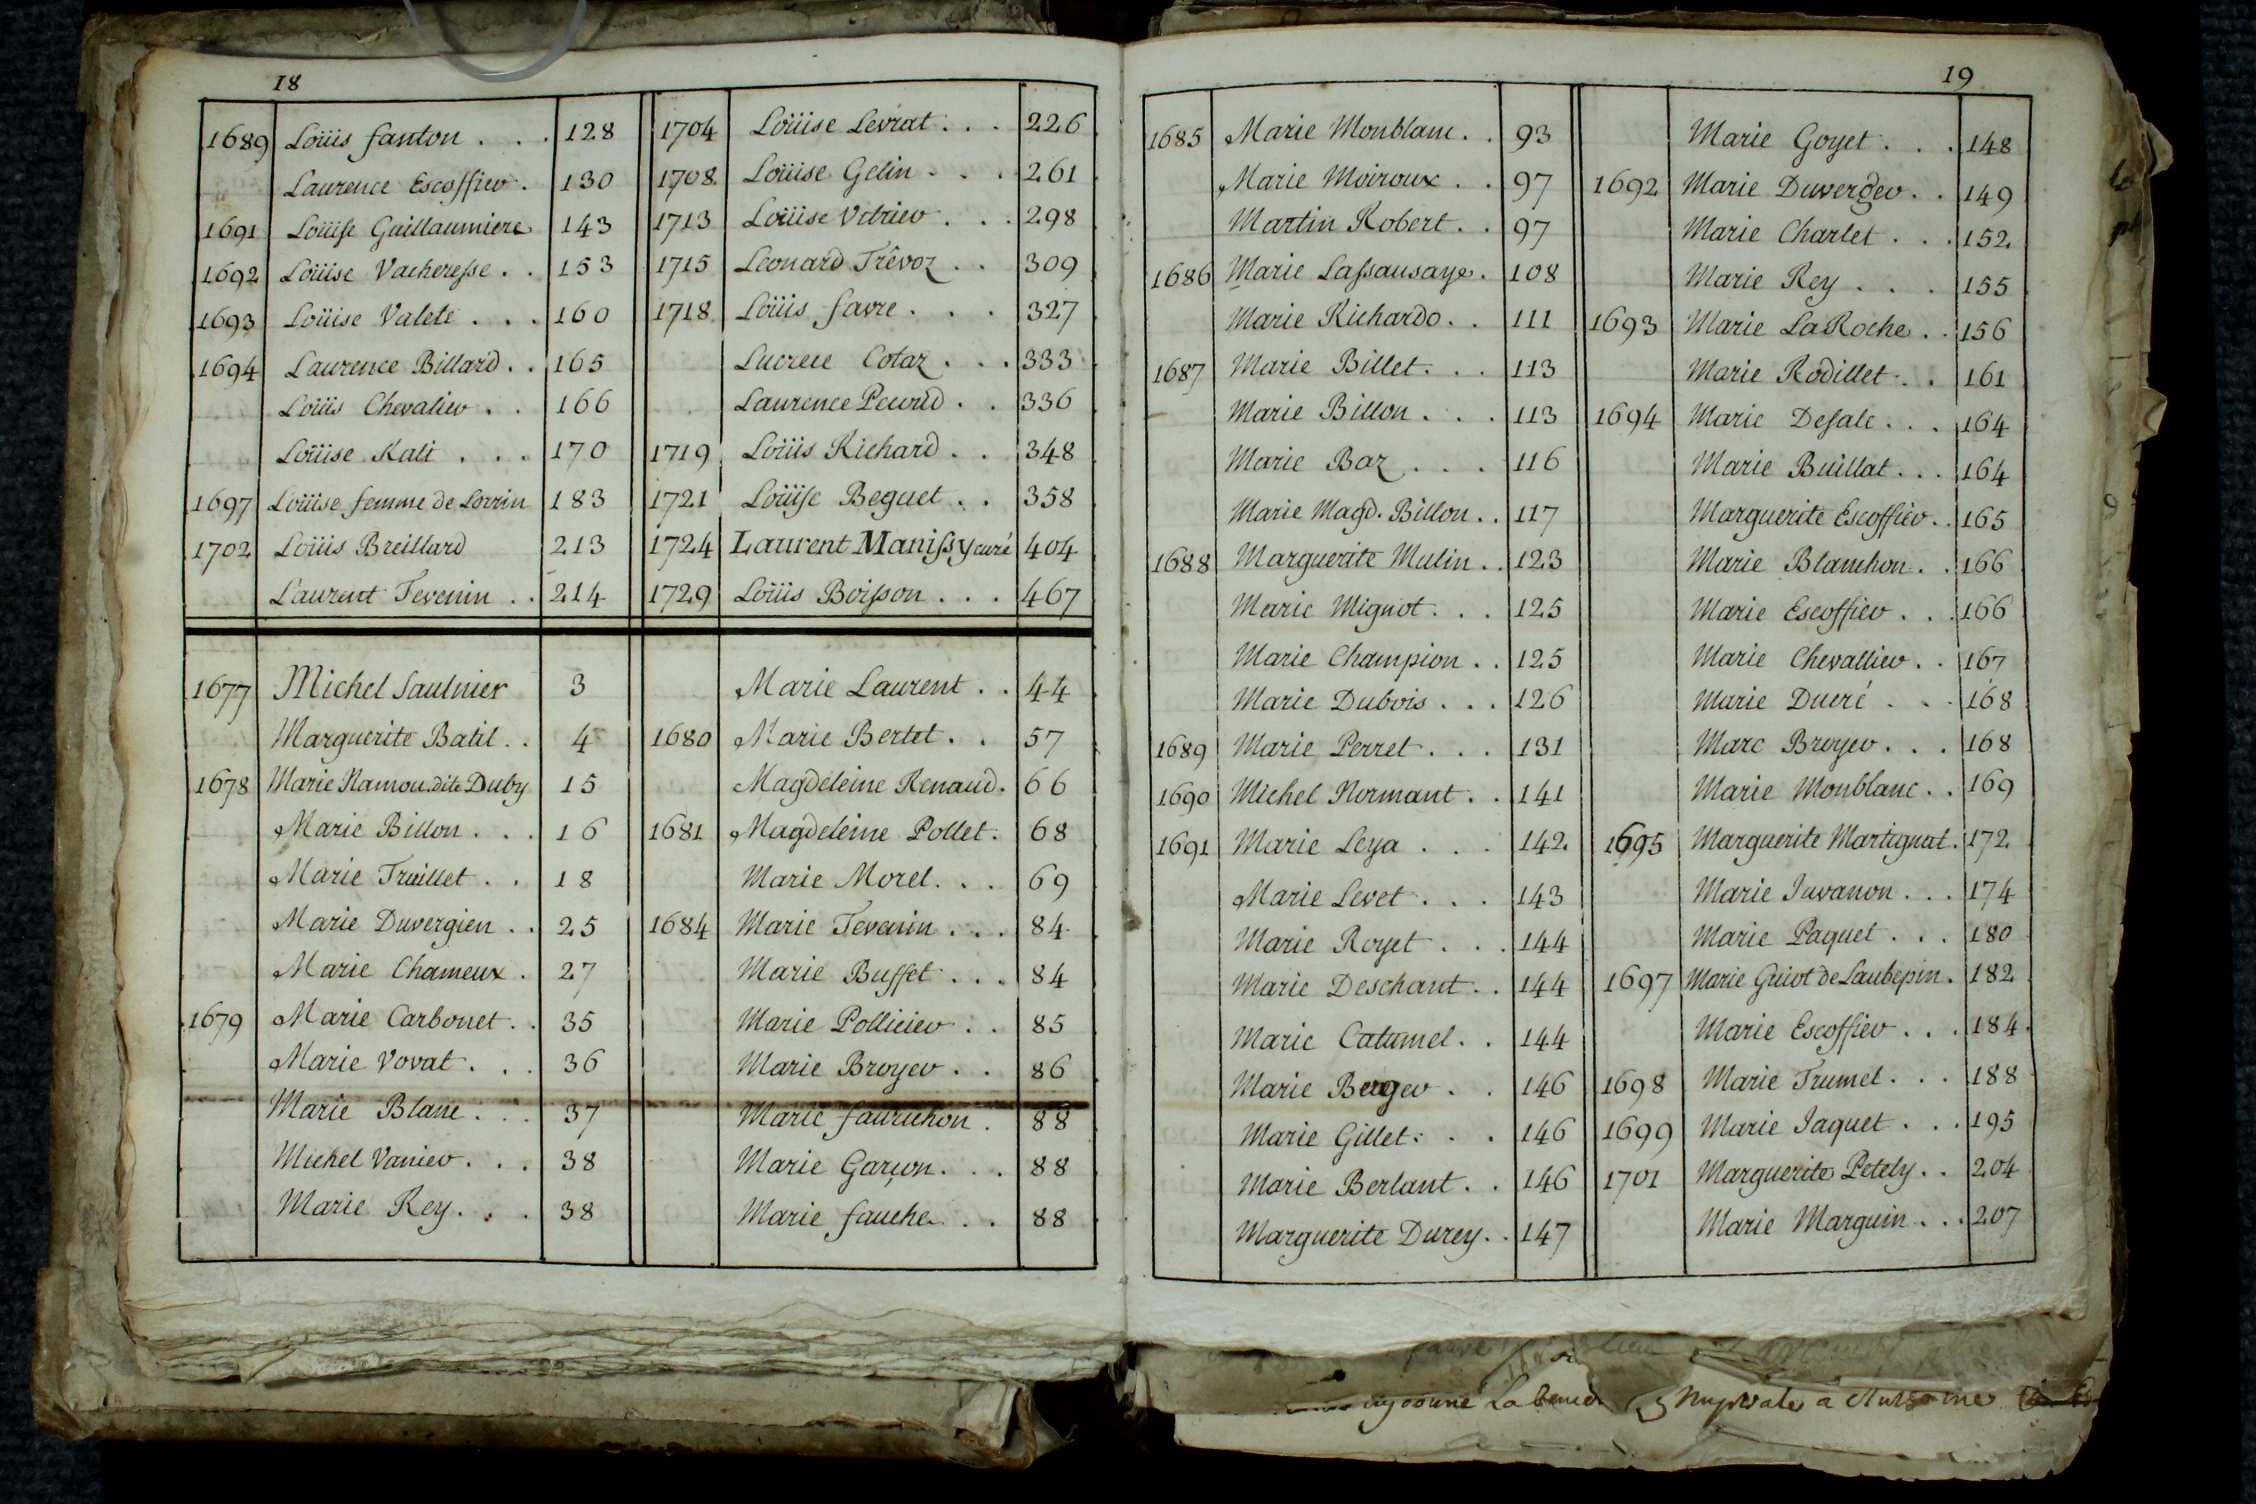 18
1689 Loüis fanton . . . 128
Laurence Escoffier . 130
1691 Loüise Guillaumiere 143
1692 Loüise Vacheresse . . 153
1693 Loüise Valete . . . 160
1694 Laurence Billard . . 165
Loüis Chevalier . . 166
Loüise Kali . . . 170
1697 Loüise femme de Lorrin 183
1702 Loüis Breillard 213
Laurent Tevenin . . 214
1704 Loüise Levrat . . . 226
1708 Loüise Gelin . . . 261
1713 Loüise Vitrier . . . 298
1715 Léonard Trêvoz . . 309
1718 Loüis favre . . . 327
Lucrece Cotaz . . . 333
Laurence Pecoud . . 336
1719 Loüis Richard . . 348
1721 Loüise Beguet . . 358
1724 Laurent Manissy curé 404
1729 Loüis Boisson . . . 467
1677 Michel Saulnier 3
Marguerite Batil . . 4
1678 Marie Namou dite Duby 15
Marie Billon . . . 16
Marie Truillet . . 18
Marie Duvergien . . 25
Marie Chameux . 27
1679 Marie Carbonet . . 35
Marie Vovat . . . 36
Marie Blanc . . . 37
Michel Vanier . . . 38
Marie Rey . . . 38
Marie Laurent . . 44
1680 Marie Bertet . . 57
Magdeleine Renaud . 66
1681 Magdeleine Pollet . 68
Marie Morel . . . 69
1684 Marie Tevenin . . . 84
Marie Buffet . . . 84
Marie Pollicier . . 85
Marie Broyer . . 86
Marie fauruchon . 88
Marie Garçon . . . 88
Marie fauche . . 88
19
1685 Marie Monblanc . . 93
Marie Moiroux . . 97
Martin Robert . . 97
1686 Marie Lassausaye . 108
Marie Richardo . . 111
1687 Marie Billet . . . 113
Marie Billon . . . 113
Marie Baz . . . 116
Marie Magd. Billon . . 117
1688 Marguerite Mulin . . 123
Marie Mignot . . . 125
Marie Champion . . 125
Marie Dubois . . . 126
1689 Marie Perret . . . 131
1690 Michel Normant . . 141
1691 Marie Leya . . . 142
Marie Levet . . . 143
Marie Royet . . . 144
Marie Deschant . . 144
Marie Catumel . . 144
Marie Berger . . 146
Marie Gillet . . . 146
Marie Berlant . . 146
Marguerite Durey . . 147
Marie Goyet . . . 148
1692 Marie Duverger . . 149
Marie Charlet . . . 152
Marie Rey . . . 155
1693 Marie La Roche . . 156
Marie Rodillet . . 161
1694 Marie Desale . . . 164
Marie Buillat . . . 164
Marguerite Escoffier . . 165
Marie Blanchon . . 166
Marie Escoffier . . . 166
Marie Chevallier . . 167
Marie Ducré . . . 168
Marc Broyer . . . 168
Marie Monblanc . . 169
1695 Marguerite Martignat . 172
Marie Juvanon . . . 174
Marie Paquet . . . 180
1697 Marie Guiot de Laubepin . 182
Marie Escoffier . . . 184
1698 Marie Trumel . . . 188
1699 Marie Jaquet . . . 195
1701 Marguerite Petely . . 204
Marie Marguin . . . 207